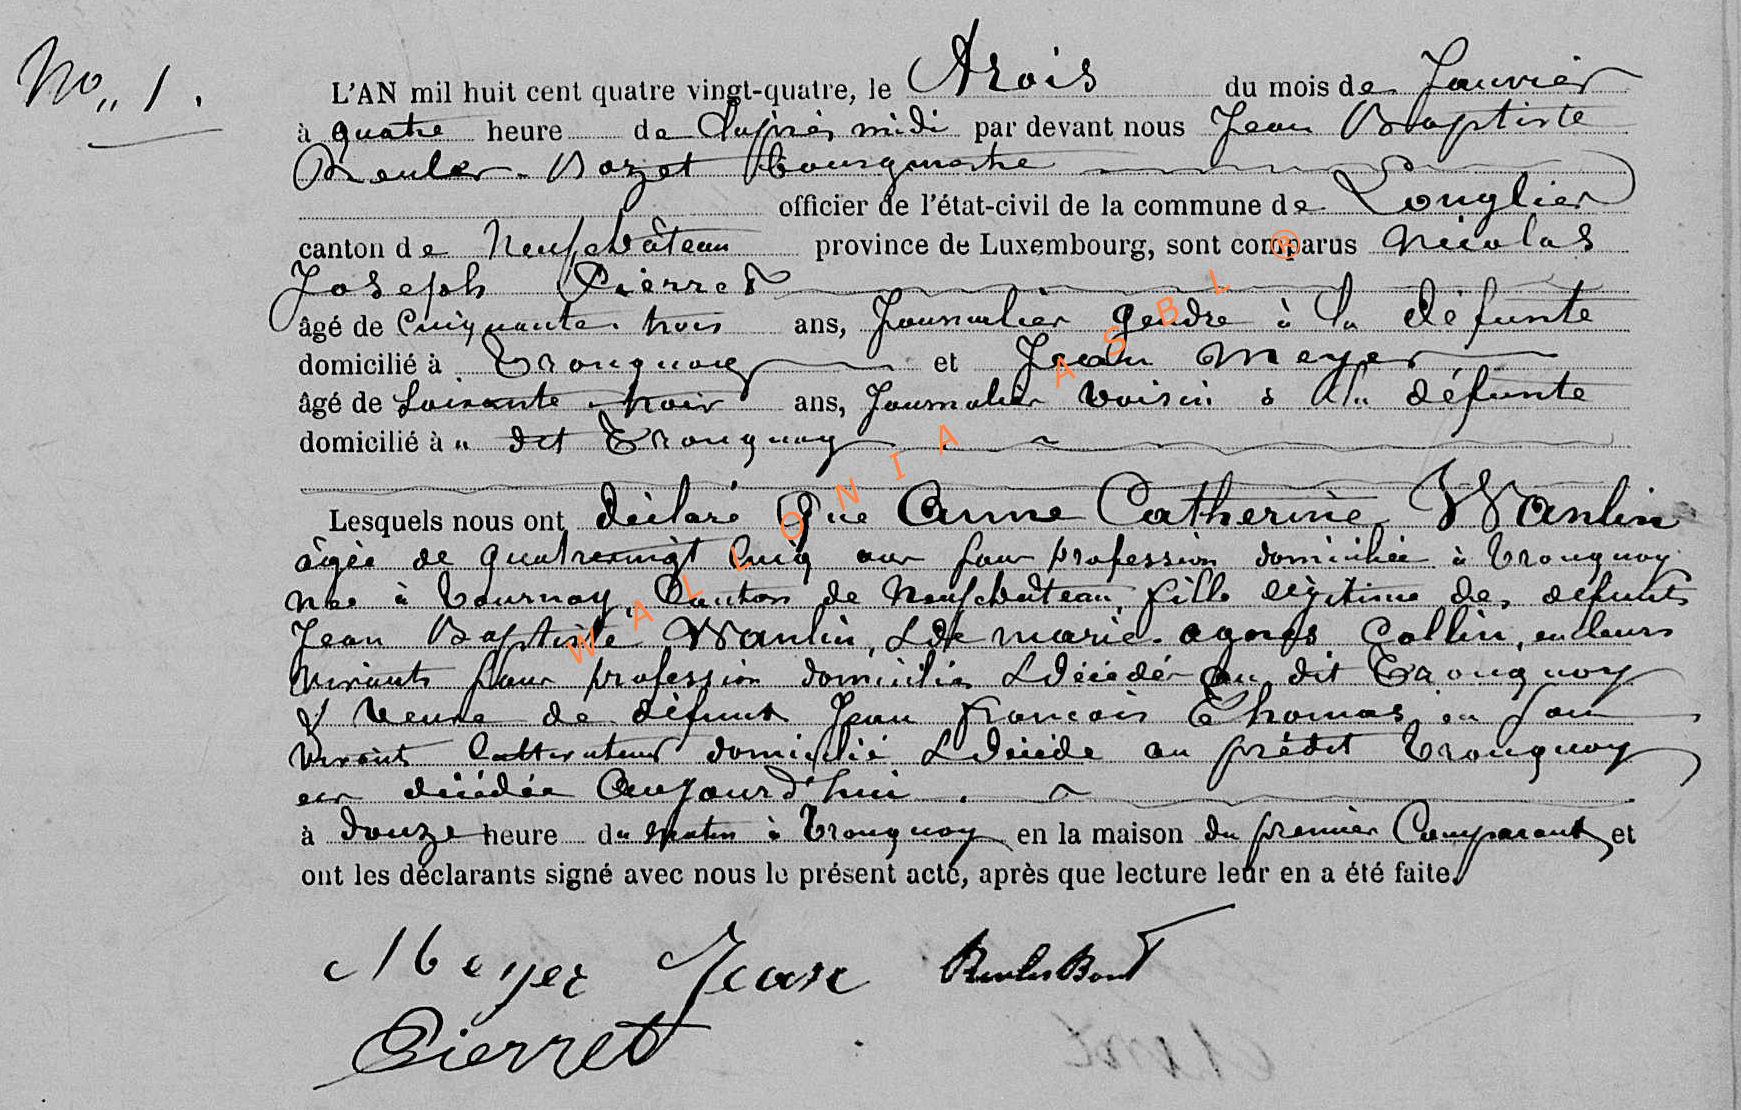 No 1.
L'AN mil huit cent quatre vingt-quatre, le Trois du mois de Janvier
à quatre heure de l'après midi par devant nous Jean Baptiste
Reuler-Bozet Bourgmestre
officier de l'état-civil de la commune de Longlier
canton de Neufchâteau province de Luxembourg, sont comparus Nicolas
Joseph Pierret
âgé de Cinquante-trois ans, Journalier gendre à la défunte
domicilié à Tronquoy et Jean Meyer
âgé de Soixante-trois ans, Journalier voisin à la défunte
domicilié à " dit Tronquoy
Lesquels nous ont déclaré que Anne Catherine Wanlin
âgée de quatrevingt cinq ans sans profession domiciliée à Tronquoy
née à Tournay, Canton de Neufchâteau, fille légitime des défunts
Jean Baptiste Wanlin, & de marie-agnes Collin, en leurs
vivants sans profession domiciliés & décédés au dit Tronquoy
& veuve de défunt Jean françois Thomas, en son
vivant Cultivateur domicilié & décédé au prédit Tronquoy
est décédée Aujourd'hui
à douze heure du matin à Tronquoy en la maison du premier Comparant et
ont les déclarants signé avec nous le présent acte, après que lecture leur en a été faite.
Meyer Jean
Pierret
WALLONIA ASBL ®